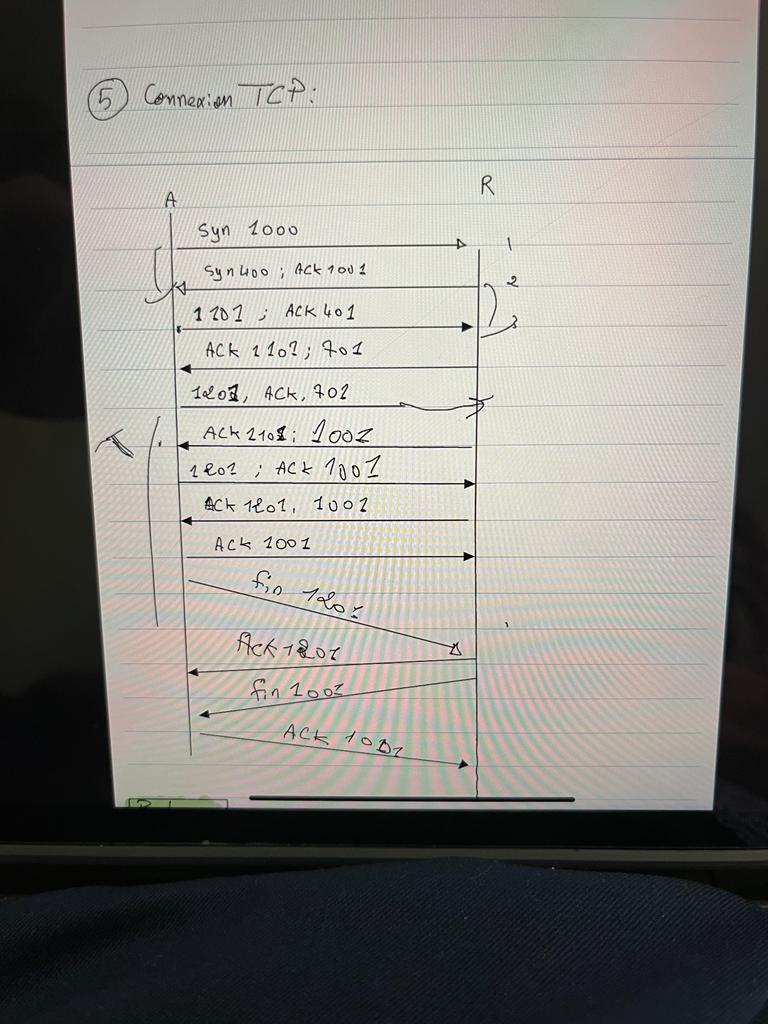 5 Connexion TCP:
A
R
Syn 1000
1
Syn 400 ; ACK 1001
2
1101 ; ACK 401
3
ACK 1101 ; 701
1201, ACK, 701
ACK 1101; 1001
1201 ; ACK 1001
ACK 1201, 1001
ACK 1001
fin 1201
ACK 1201
fin 1001
ACK 1001